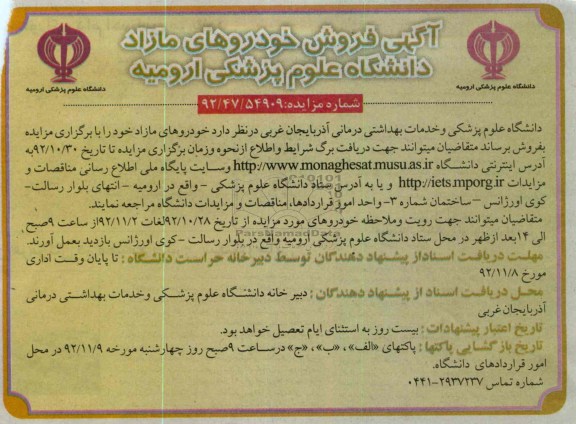 آگهی فروش خودروهای مازاد
دانشگاه علوم پزشکی ارومیه
دانشگاه علوم پزشکی ارومیه
دانشگاه علوم پزشکی ارومیه
شماره مزایده:۹۲/۴۷/۵۴۹۰۹
دانشگاه علوم پزشکی وخدمات بهداشتی درمانی آذربایجان غربی درنظر دارد خودروهای مازاد خود را با برگزاری مزایده
بفروش برساند متقاضیان میتوانند جهت دریافت برگ شرایط واطلاع ازنحوه وزمان برگزاری مزایده تا تاریخ ۹۲/۱۰/۳۰به
آدرس اینترنتی دانشگاه http://www.monaghesat.musu.as.ir وسایت پایگاه ملی اطلاع رسانی مناقصات و
مزایدات http://iets.mporg.ir و یا به آدرس ستاد دانشگاه علوم پزشکی - واقع در ارومیه - انتهای بلوار رسالت-
کوی اورژانس -ساختمان شماره ۳- واحد امور قراردادها، مناقصات و مزایدات دانشگاه مراجعه نمایند.
متقاضیان میتوانند جهت رویت وملاحظه خودروهای مورد مزایده از تاریخ ۹۲/۱۰/۲۸لغات ۹۲/۱۱/۲از ساعت ۹صبح
الی ۱۴بعد ازظهر در محل ستاد دانشگاه علوم پزشکی ارومیه واقع در بلوار رسالت -کوی اورژانس بازدید بعمل آورند.
مهلت دریافت اسناداز پیشنهاد دهندگان توسط دبیرخانه حراست دانشگاه : تا پایان وقت اداری
مورخ ۹۲/۱۱/۸
محل دریافت اسناد از پیشنهاد دهندگان : دبیر خانه دانشگاه علوم پزشکی وخدمات بهداشتی درمانی
آذربایجان غربی
تاریخ اعتبار پیشنهادات : بیست روز به استثنای ایام تعصیل خواهد بود.
تاریخ باز گشایی پاکتها : پاکتهای «الف»، «ب»، «ج» درساعت ۹صبح روز چهارشنبه مورخه ۹۲/۱۱/۹ در محل
امور قراردادهای دانشگاه.
شماره تماس ۲۹۳۷۲۳۷-۰۴۴۱
ParsNamadData